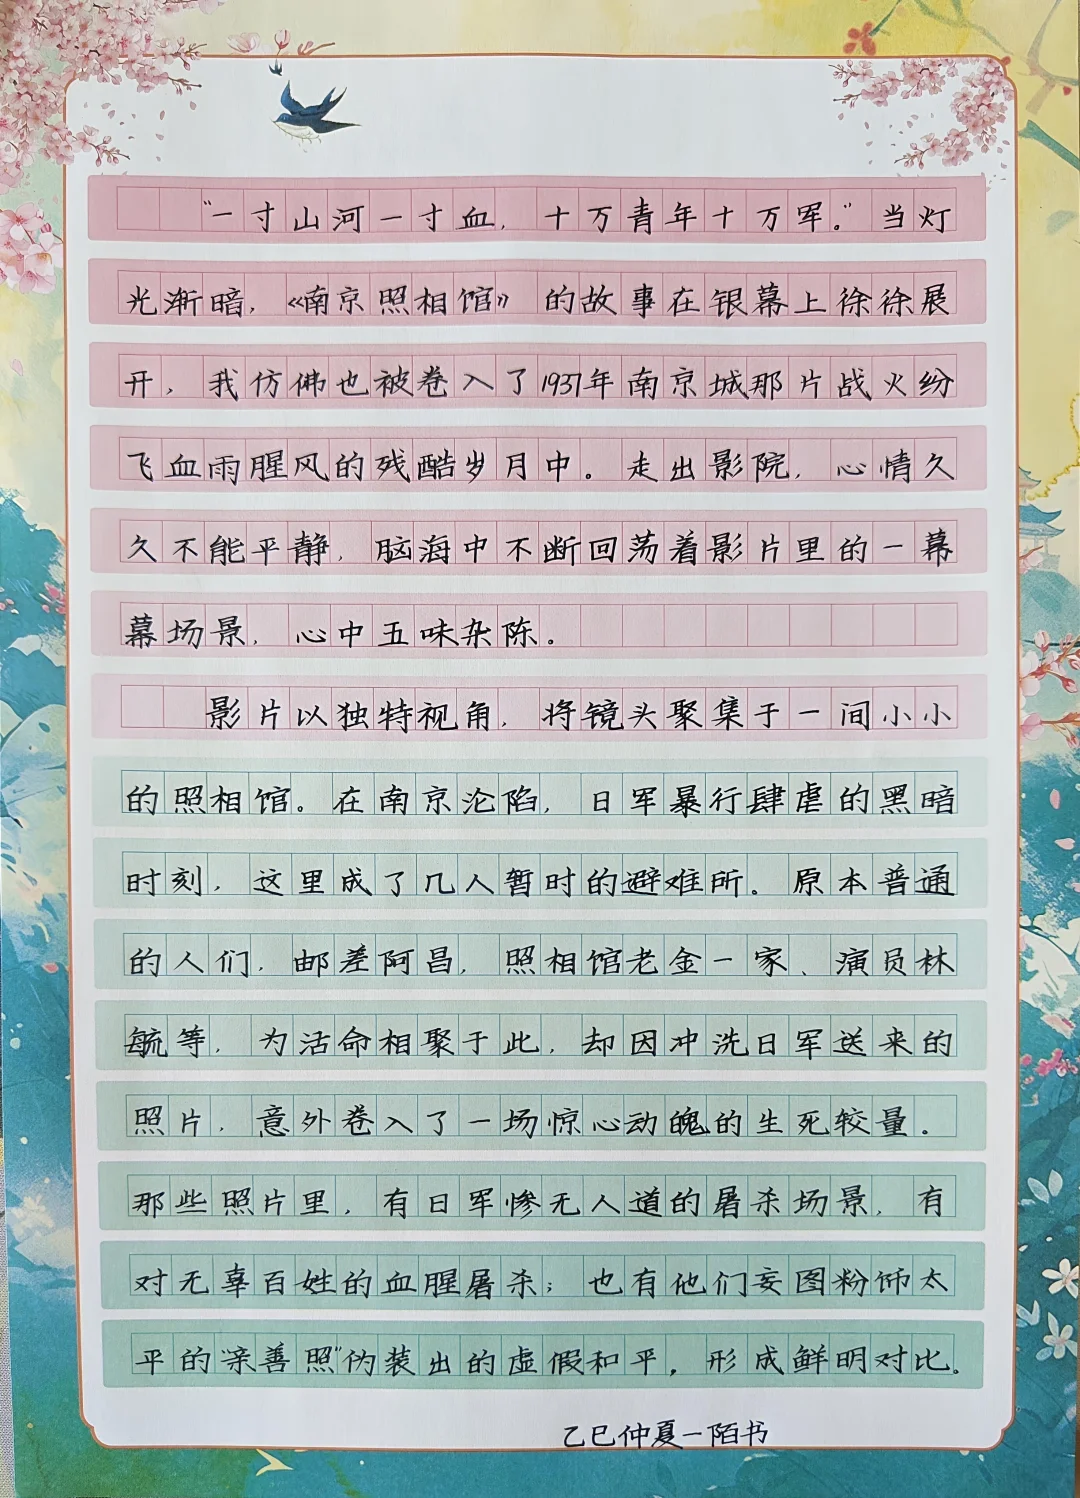 “一寸山河一寸血，十万青年十万军。”当灯
光渐暗，《南京照相馆》的故事在银幕上徐徐展
开，我仿佛也被卷入了1937年南京城那片战火纷
飞血雨腥风的残酷岁月中。走出影院，心情久
久不能平静，脑海中不断回荡着影片里的一幕
幕场景，心中五味杂陈。
影片以独特视角，将镜头聚集于一间小小
的照相馆。在南京沦陷，日军暴行肆虐的黑暗
时刻，这里成了几人暂时的避难所。原本普通
的人们，邮差阿昌，照相馆老金一家、演员林
毓等，为活命相聚于此，却因冲洗日军送来的
照片，意外卷入了一场惊心动魄的生死较量。
那些照片里，有日军惨无人道的屠杀场景，有
对无辜百姓的血腥屠杀；也有他们妄图粉饰太
平的“亲善照”伪装出的虚假和平，形成鲜明对比。
乙巳仲夏一陌书